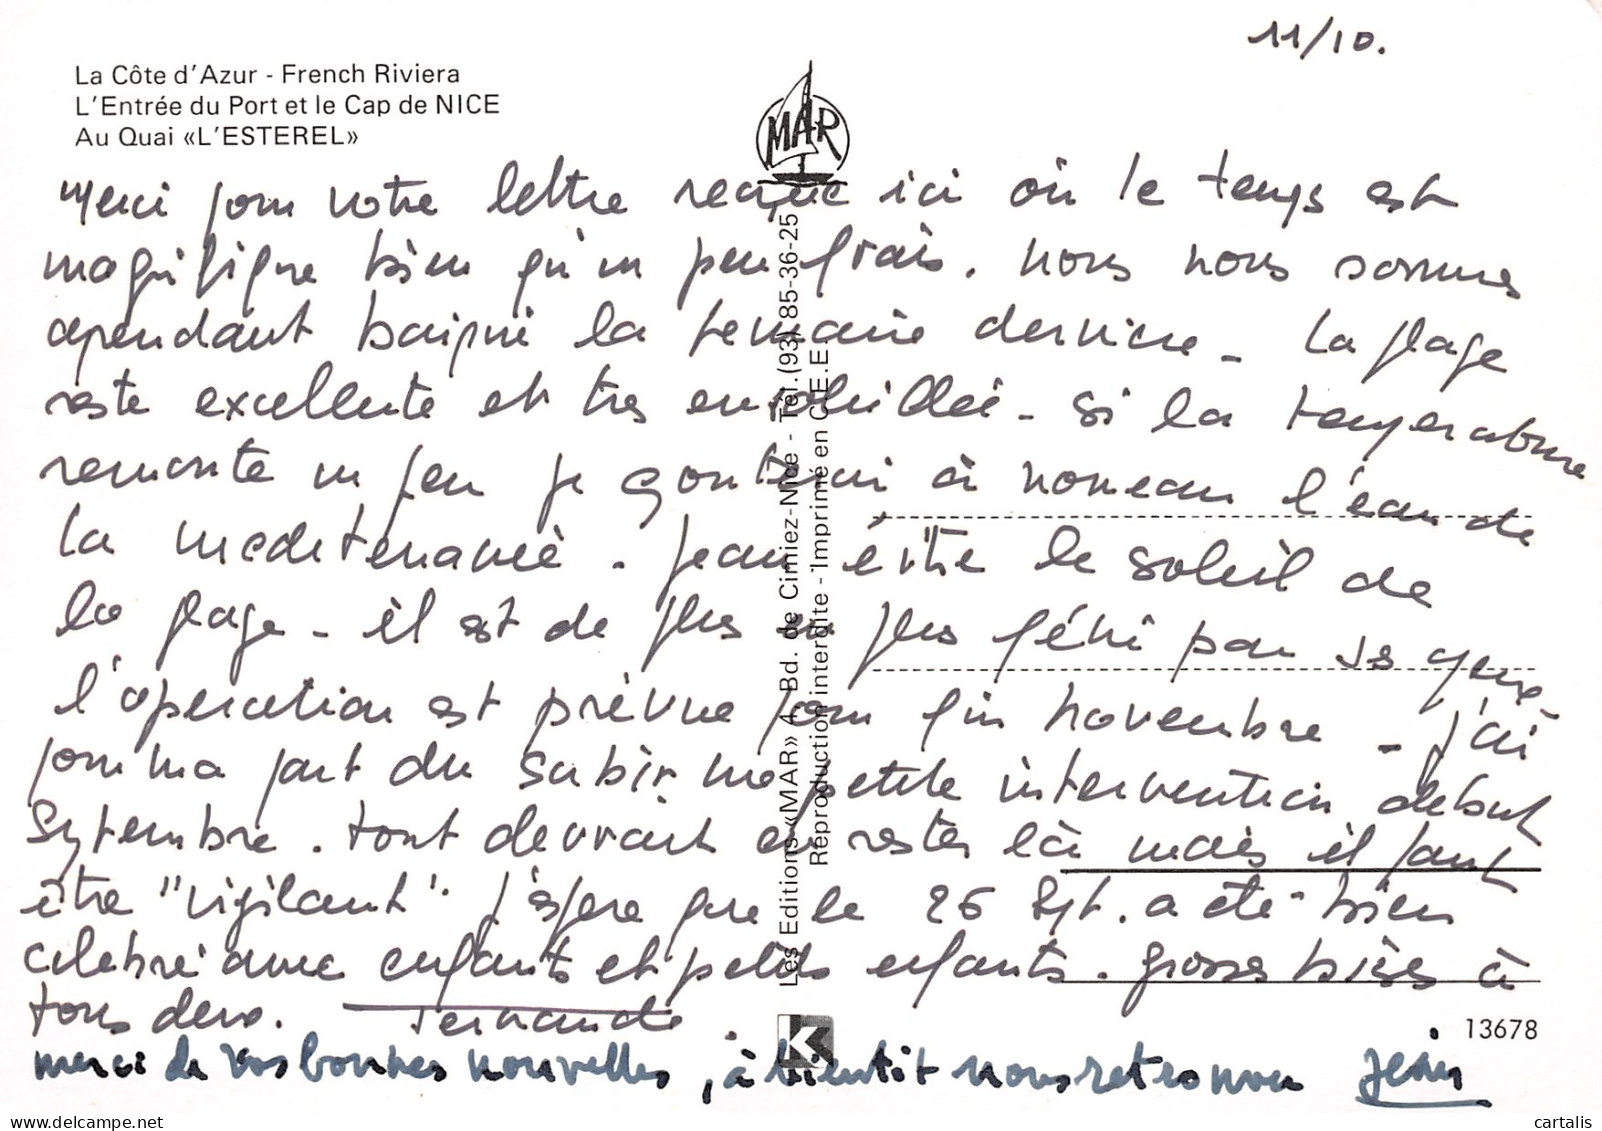 11/10.
La Côte d'Azur - French Riviera
L'Entrée du Port et le Cap de NICE
Au Quai «L'ESTEREL»
MAR
Merci pour votre lettre reçue ici où le temps est
magnifique bien qu'un peu frais. nous nous sommes
cependant baigné la semaine dernière - La plage
reste excellente et très ensoleillée - Si la température
remonte un peu je goûterai à nouveau l'eau de
la mediterranée. Jean évite le soleil de
la plage - il est de plus en plus gêné par ses yeux
l'operation est prévue pour fin novembre - j'ai
pour ma part du subir une petite intervention debut
Septembre. tout devrait en rester là mais il faut
être "vigilant". J'espere que le 26 Sept. a été bien
celebré avec enfants et petits enfants. grosses bises à
tous deux. Fernande
merci de vos bonnes nouvelles, à bientôt nous retrouver Jean
Les Editions «MAR» 4, Bd. de Cimiez-Nice - Tél. (93) 85-36-25
Reproduction interdite - Imprimé en C.E.E.
K
13678
cartalis